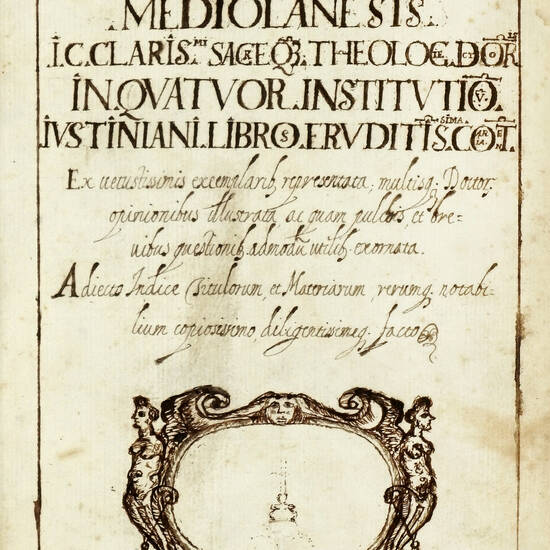 MEDIOLANĒSIS
I.C. CLARIS.MI SACRÆQȜ. THEOLOG.IÆ DOCTORIS
IN.QVATVOR.INSTITVTIONV̄.
IVSTINIANI.LIBROS.ERVDITIS.SIMA COMENTARIA.
Ex uetustissimis exemplarib, representata; multisq; Doctor,
opinionibus illustrata, ac quam pulchris, et bre-
uibus quęstionib, admodū utilib, exornata.
Adiecto Indice Titulorum, et Materiarum, rerumq. notabi-
lium copiosissimo, diligentissimeq. facto